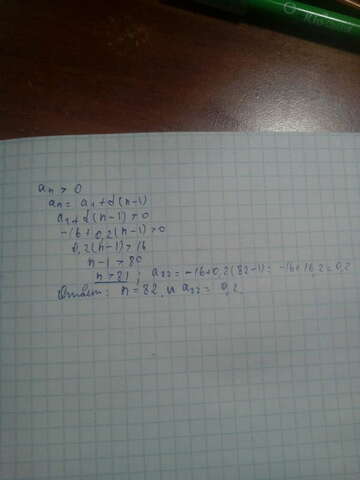 aₙ > 0
aₙ = a₁ + d(n-1)
a₁ + d(n-1) > 0
-16 + 0,2(n-1) > 0
0,2(n-1) > 16
n-1 > 80
n > 81 ; a₈₂ = -16+0,2(82-1) = -16+16,2 = 0,2
Ответ: n = 82, и a₈₂ = 0,2.